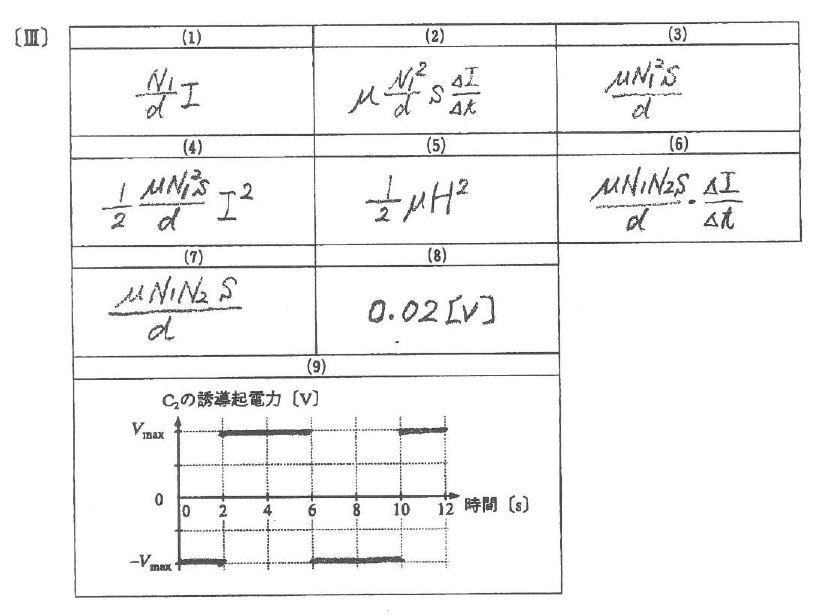 〔Ⅲ〕
(1) (2) (3)
N₁/d I
μ N₁²/d S ΔI/Δt
μN₁²S/d
(4) (5) (6)
1/2 μN₁²S/d I²
1/2 μH²
μN₁N₂S/d · ΔI/Δt
(7) (8)
μN₁N₂S/d
0.02[V]
(9)
C₂の誘導起電力〔V〕
Vmax
0
0 2 4 6 8 10 12 時間〔s〕
-Vmax